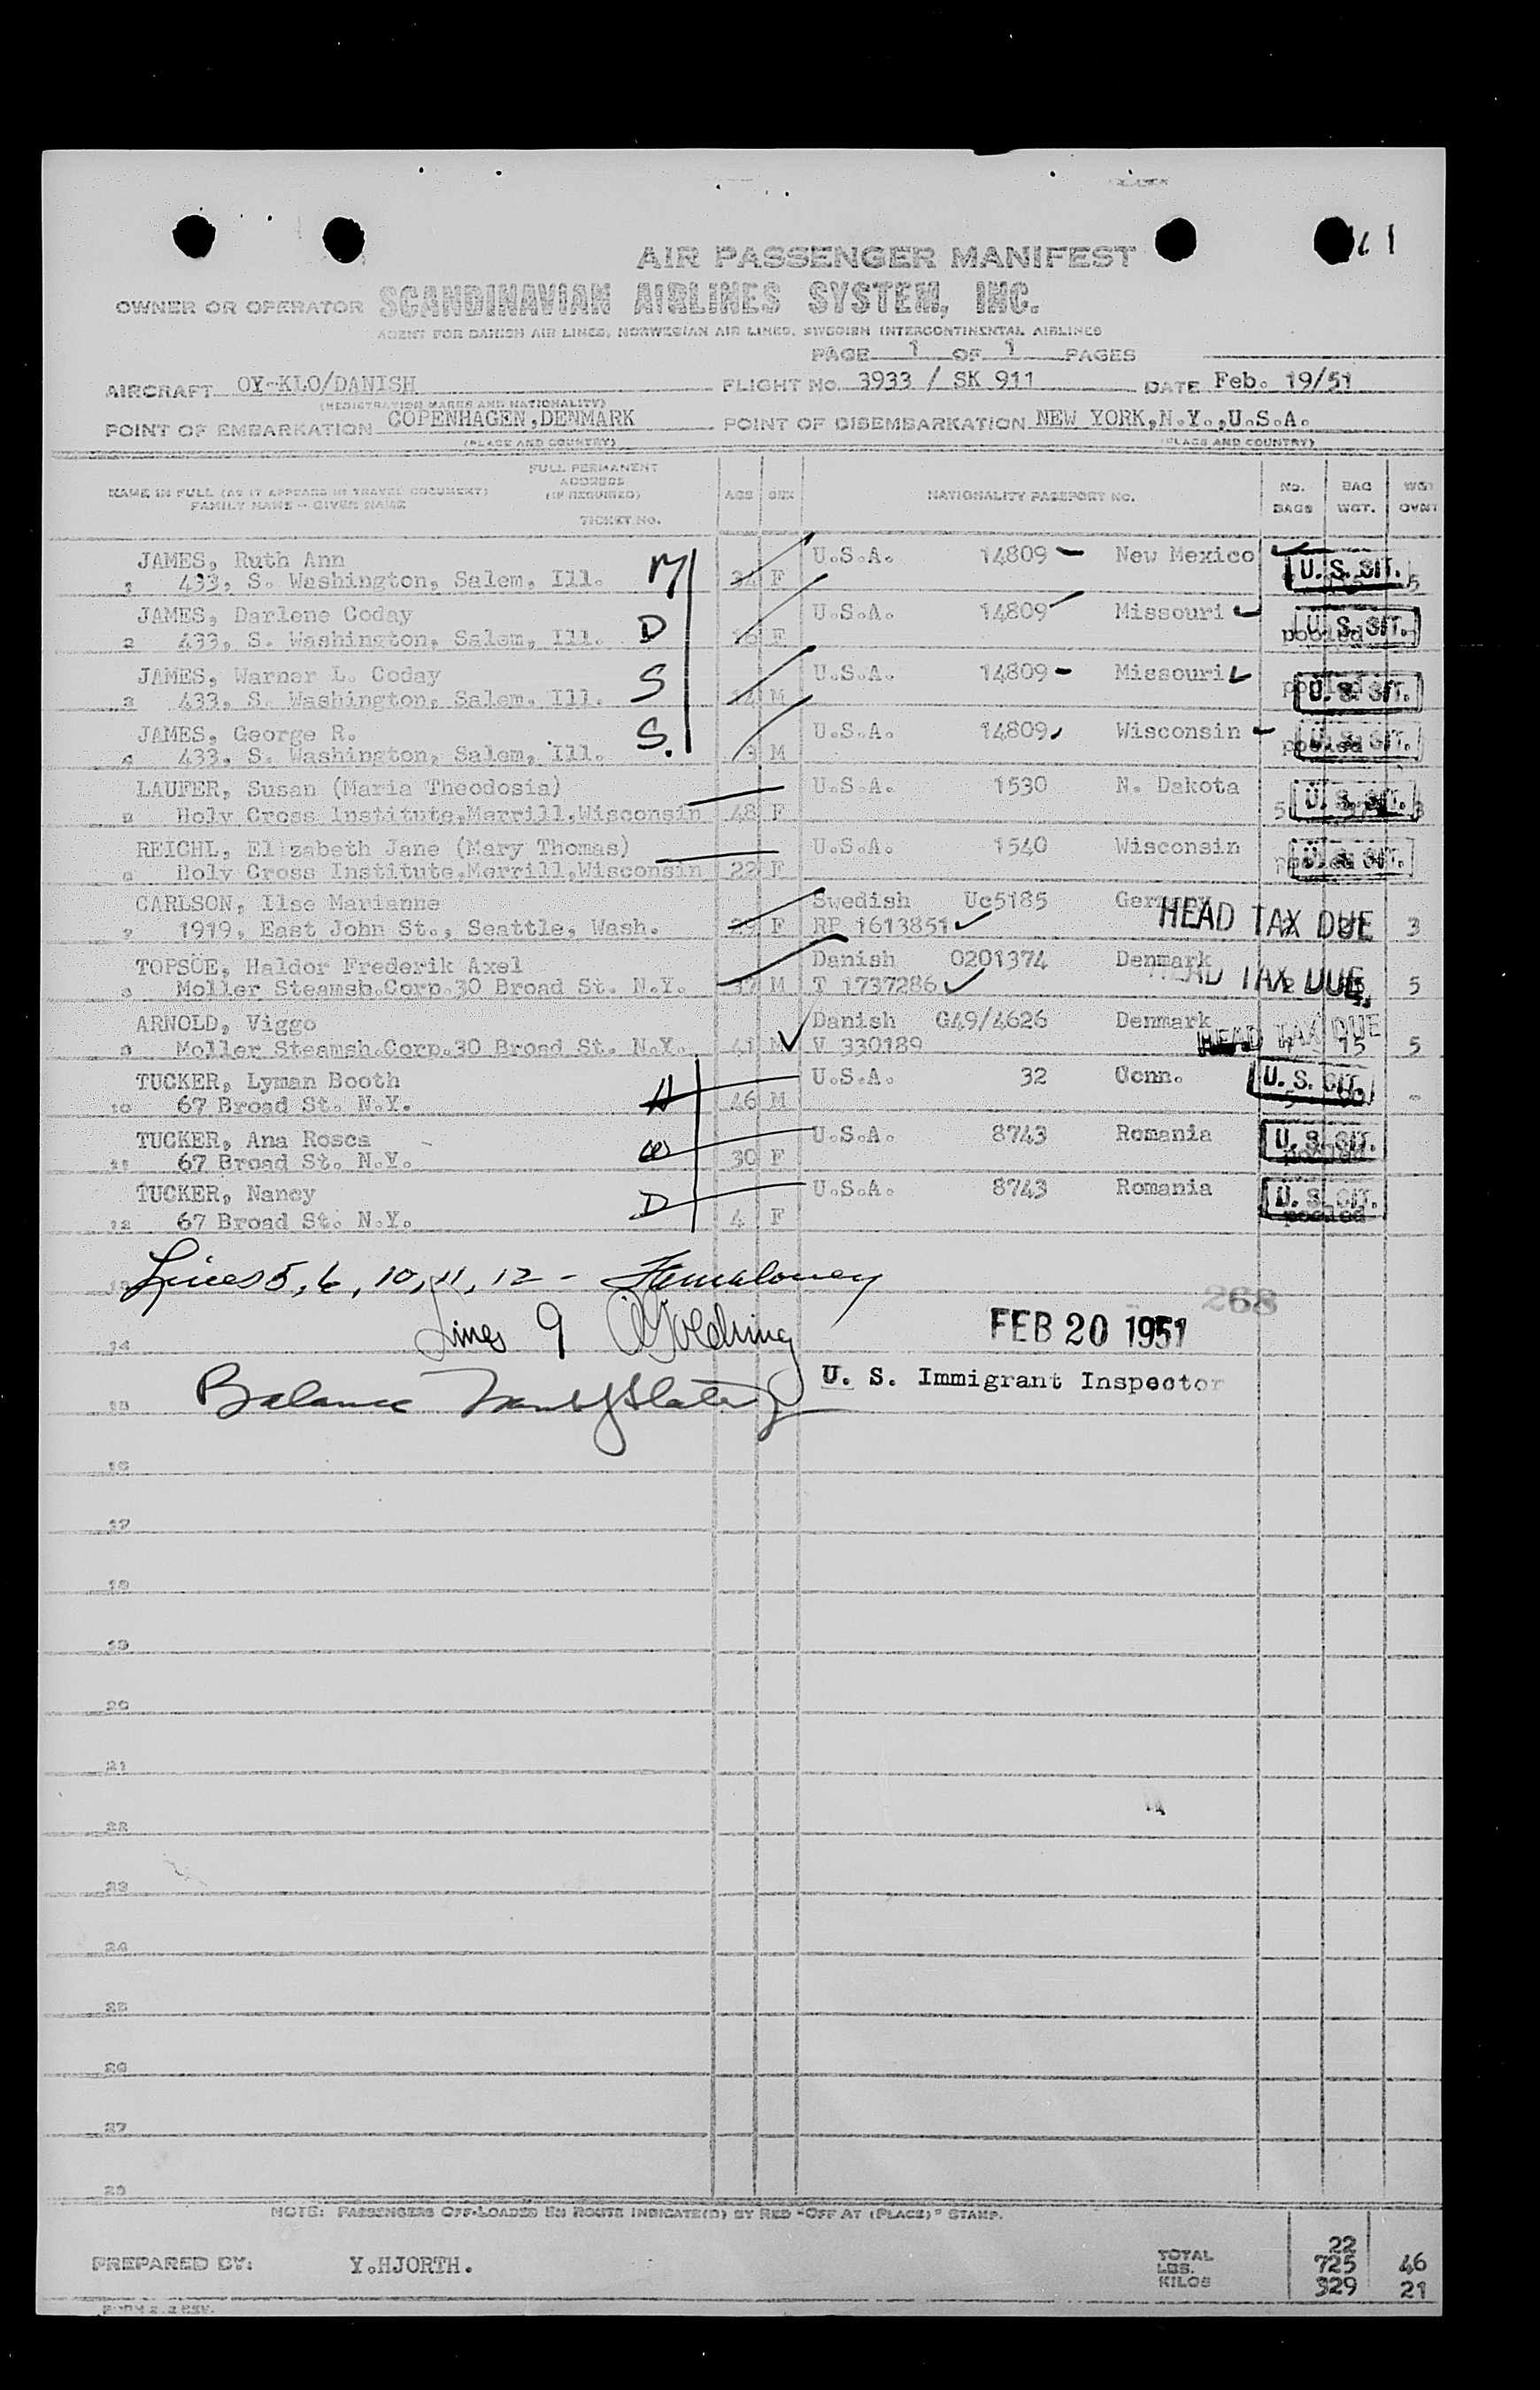 AIR PASSENGER MANIFEST
OWNER OR OPERATOR SCANDINAVIAN AIRLINES SYSTEM, INC.
AGENT FOR DANISH AIR LINES, NORWEGIAN AIR LINES, SWEDISH INTERCONTINENTAL AIRLINES
PAGE 1 OF 1 PAGES
AIRCRAFT OY-KLO/DANISH FLIGHT NO. 3933 / SK 911 DATE Feb. 19/51
(REGISTRATION MARKS AND NATIONALITY)
POINT OF EMBARKATION COPENHAGEN,DENMARK POINT OF DISEMBARKATION NEW YORK,N.Y.,U.S.A.
(PLACE AND COUNTRY) (PLACE AND COUNTRY)
NAME IN FULL (AS IT APPEARS IN TRAVEL DOCUMENT) FAMILY NAME - GIVEN NAME FULL PERMANENT ADDRESS (IF REQUIRED) TICKET NO. AGE SEX NATIONALITY PASSPORT NO. NO. BAGS BAG WGT. WGT OVNT
JAMES, Ruth Ann M U.S.A. 14809 New Mexico U.S. CIT.
1 433, S. Washington, Salem, Ill. 34 F 5
JAMES, Darlene Coday D U.S.A. 14809 Missouri U.S. CIT.
2 433, S. Washington, Salem, Ill. 16 F pooled
JAMES, Warner L. Coday S U.S.A. 14809 Missouri U.S. CIT.
3 433, S. Washington, Salem, Ill. 14 M pooled
JAMES, George R. S. U.S.A. 14809 Wisconsin U.S. CIT.
4 433, S. Washington, Salem, Ill. 3 M pooled
LAUFER, Susan (Maria Theodosia) U.S.A. 1530 N. Dakota U.S. CIT.
5 Holy Cross Institute,Merrill,Wisconsin 48 F 5 3
REICHL, Elizabeth Jane (Mary Thomas) U.S.A. 1540 Wisconsin U.S. CIT.
6 Holy Cross Institute,Merrill,Wisconsin 22 F pooled
CARLSON, Ilse Marianne Swedish Uc5185 Germany HEAD TAX DUE
7 1919, East John St., Seattle, Wash. 29 F RP 1613851 3
TOPSÖE, Haldor Frederik Axel Danish 0201374 Denmark HEAD TAX DUE
8 Moller Steamsh.Corp.30 Broad St. N.Y. 37 M T 1737286 5
ARNOLD, Viggo Danish G49/4626 Denmark HEAD TAX DUE
9 Moller Steamsh.Corp.30 Broad St. N.Y. 41 M V 330189 15 5
TUCKER, Lyman Booth U.S.A. 32 Conn. U.S. CIT.
10 67 Broad St. N.Y. H 46 M 5 -
TUCKER, Ana Rosca U.S.A. 8743 Romania U.S. CIT.
11 67 Broad St. N.Y. W 30 F pooled
TUCKER, Nancy U.S.A. 8743 Romania U.S. CIT.
12 67 Broad St. N.Y. D 4 F pooled
13 Lines 5, 6, 10, 11, 12 -
268
14 Lines 9 Goldring FEB 20 1951
U. S. Immigrant Inspector
15 Balance
16
17
18
19
20
21
22
23
24
25
26
27
28
NOTE: PASSENGERS OFF-LOADED EN ROUTE INDICATE(D) BY RED "OFF AT (PLACE)" STAMP.
PREPARED BY: Y.HJORTH.
TOTAL 22
LBS. 725 46
KILOS 329 21